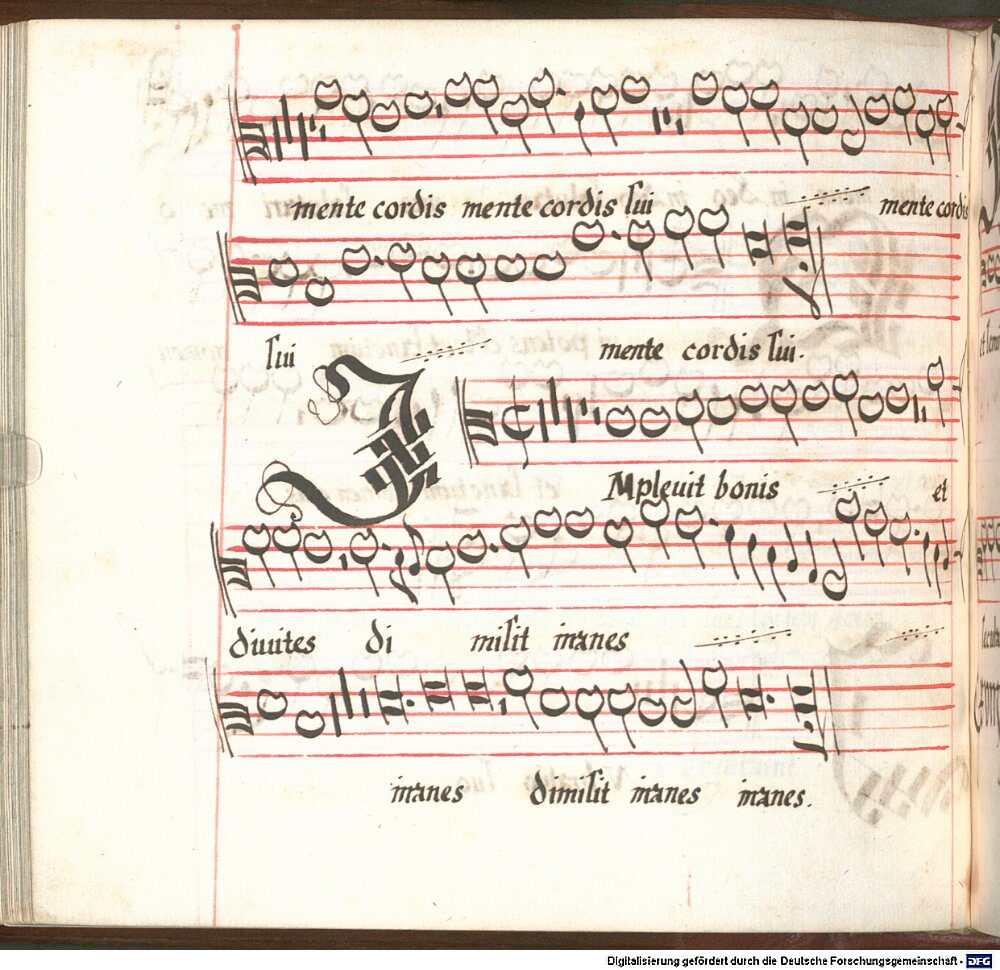 mente cordis mente cordis sui mente cordis
sui mente cordis sui.
IMpleuit bonis et
diuites di misit inanes
inanes dimisit inanes inanes.
Digitalisierung gefördert durch die Deutsche Forschungsgemeinschaft - DFG